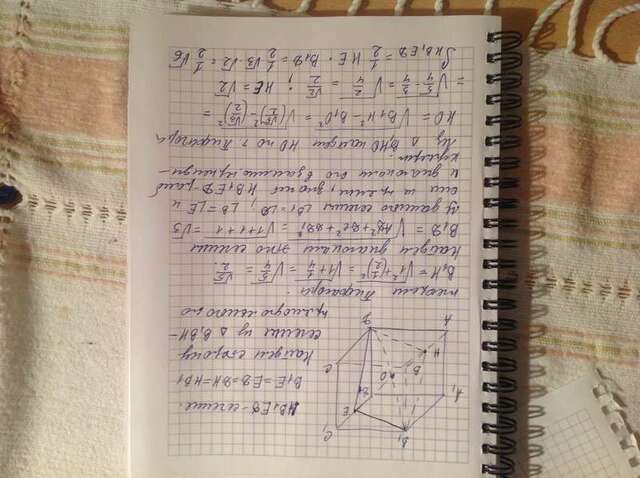 B₁ C₁
E
A₁ D₁
O
B C
H
A D
HB₁ED - сечение.
B₁E = ED = DH = HB₁
Найдем сторону
сечения из △ B₁BH -
прямоугольного по
теореме Пифагора.
B₁H = √(1² + (1/2)²) = √(1 + 1/4) = √(5/4) = √5/2.
Найдем диагонали этого сечения
B₁D = √(AD² + DC² + DD₁²) = √(1+1+1) = √3
У данного сечения ∠B₁ = ∠D, ∠B = ∠E и
они не прямые, значит HB₁ED - ромб
и диагонали его взаимно перпенди-
кулярны.
Из △ B₁HO найдем HO по т. Пифагора
HO = √(B₁H² - B₁O²) = √((√5/2)² - (√3/2)²) =
= √(5/4 - 3/4) = √(2/4) = √2/2 ; HE = √2
S HB₁ED = 1/2 HE · B₁D = 1/2 √3 · √2 = 1/2 √6